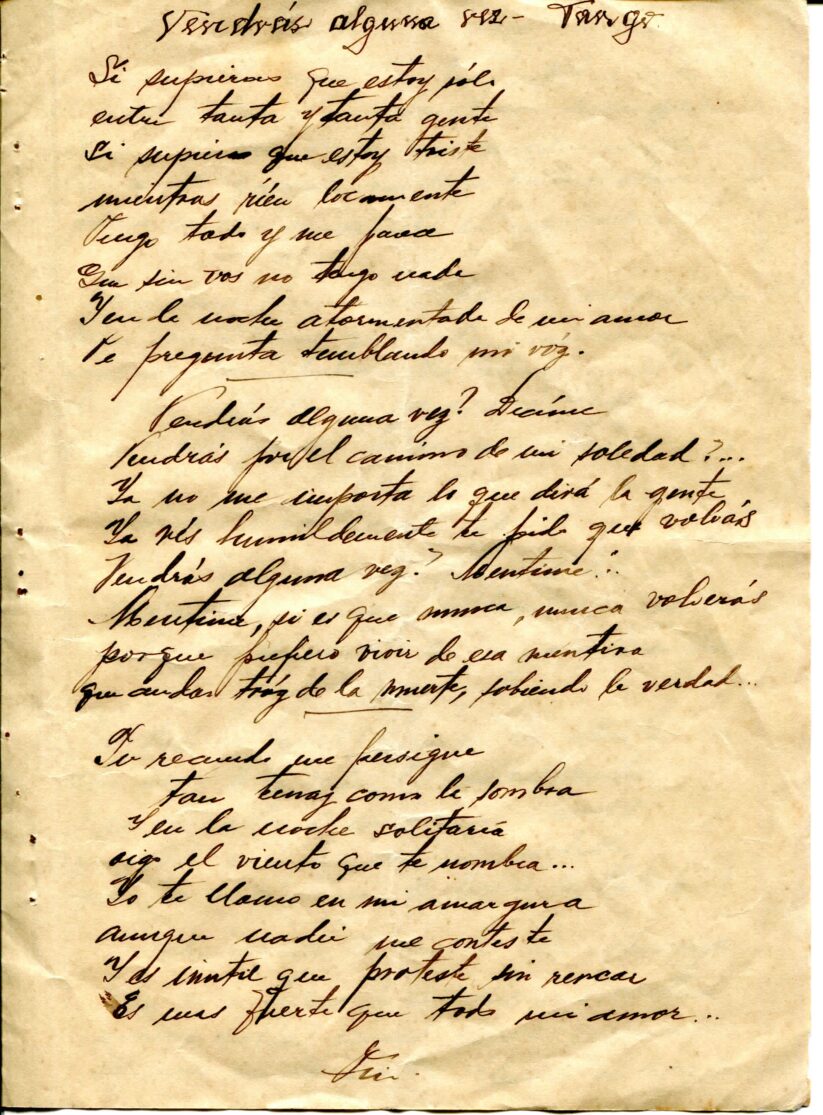 Vendrás alguna vez - Tango
Si supieras que estoy sólo
entre tanta y tanta gente
Si supieras que estoy triste
mientras ríen locamente
Tengo todo y me parece
Que sin vos no tengo nada
Y en la noche atormentada de mi amor
Te pregunta temblando mi vóz.
Vendrás alguna vez? Decime
Vendrás por el camino de mi soledad?...
Ya no me importa lo que dirá la gente
Ya vés humildemente te pido que volvais
Vendrás alguna vez? Mentime..
Mentime, si es que nunca, nunca volverás
porque prefiero vivir de esa mentira
que andar tráz de la muerte, sabiendo la verdad...
Tu recuerdo me persigue
tan tenaz como la sombra
Y en la noche solitaria
oigo el viento que te nombra...
Yo te llamo en mi amargura
aunque nadie me conteste
Y es inutil que proteste sin rencor
Es mas fuerte que todo mi amor...
Fin.